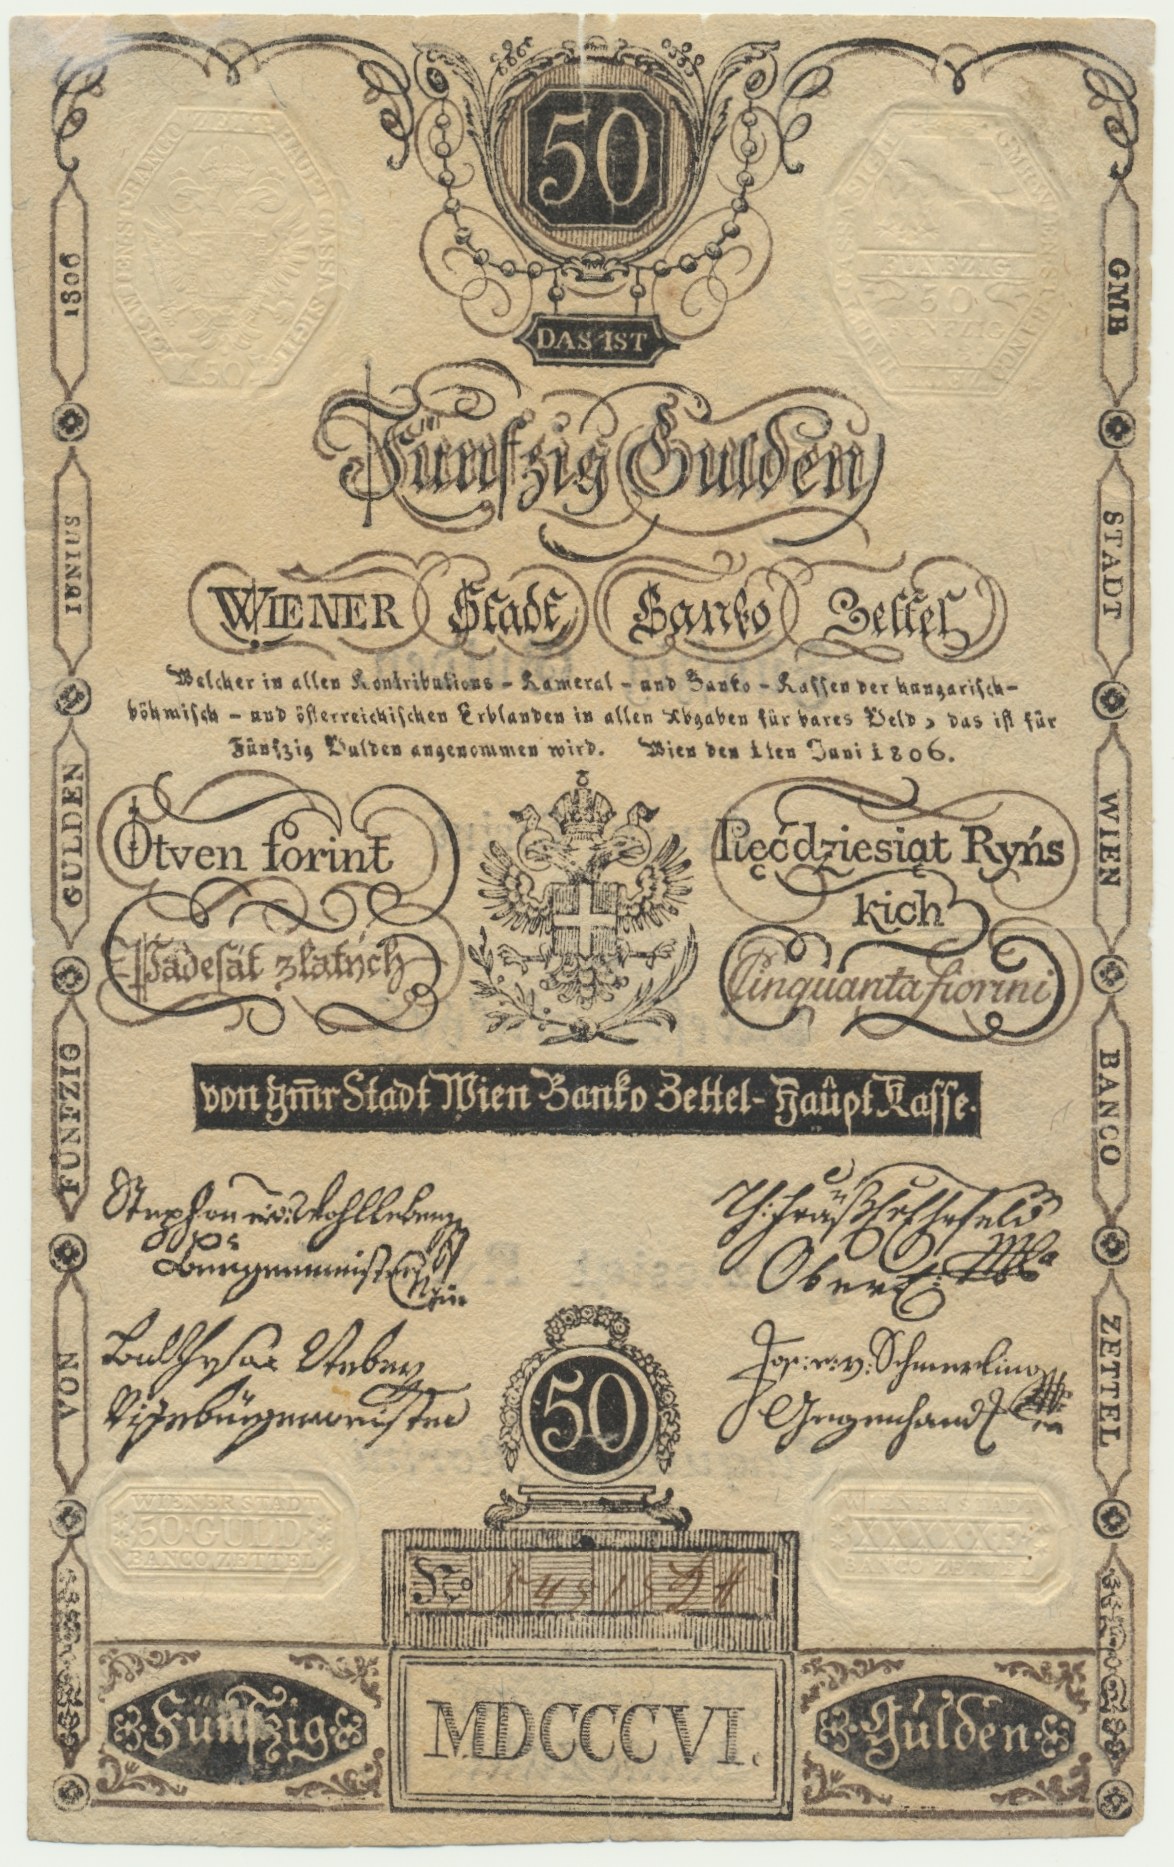 50
DAS IST
Fünfzig Gulden
WIENER Stadt Banko Zettel
Welcher in allen Kontributions - Kameral - und Banko - Kassen der hungarisch-
böhmisch - und österreichischen Erblanden in allen Abgaben für bares Geld, das ist für
Fünfzig Gulden angenommen wird. Wien den 1ten Juni 1806.
Ötven forint
Pięćdziesiąt Ryńs
kich
Padesát zlatých
Cinquanta fiorini
von gm̅r Stadt Wien Banko Zettel-Haûpt Kasse.
Stephan
Burgermeister
Obereinn
Jos: e: v: Schmerling
Gegenhand
50
WIENER STADT
50 GULD
BANCO ZETTEL
XXXXXF
No
Fünfzig
MDCCCVI.
Gulden
VON FUNFZIG GULDEN IUNIUS 1806
GMB STADT WIEN BANCO ZETTEL
FUNFZIG
50